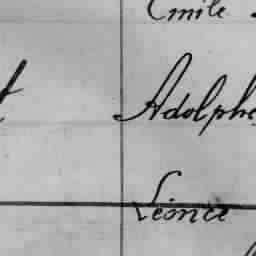 Emile
Adolphe
Léonce